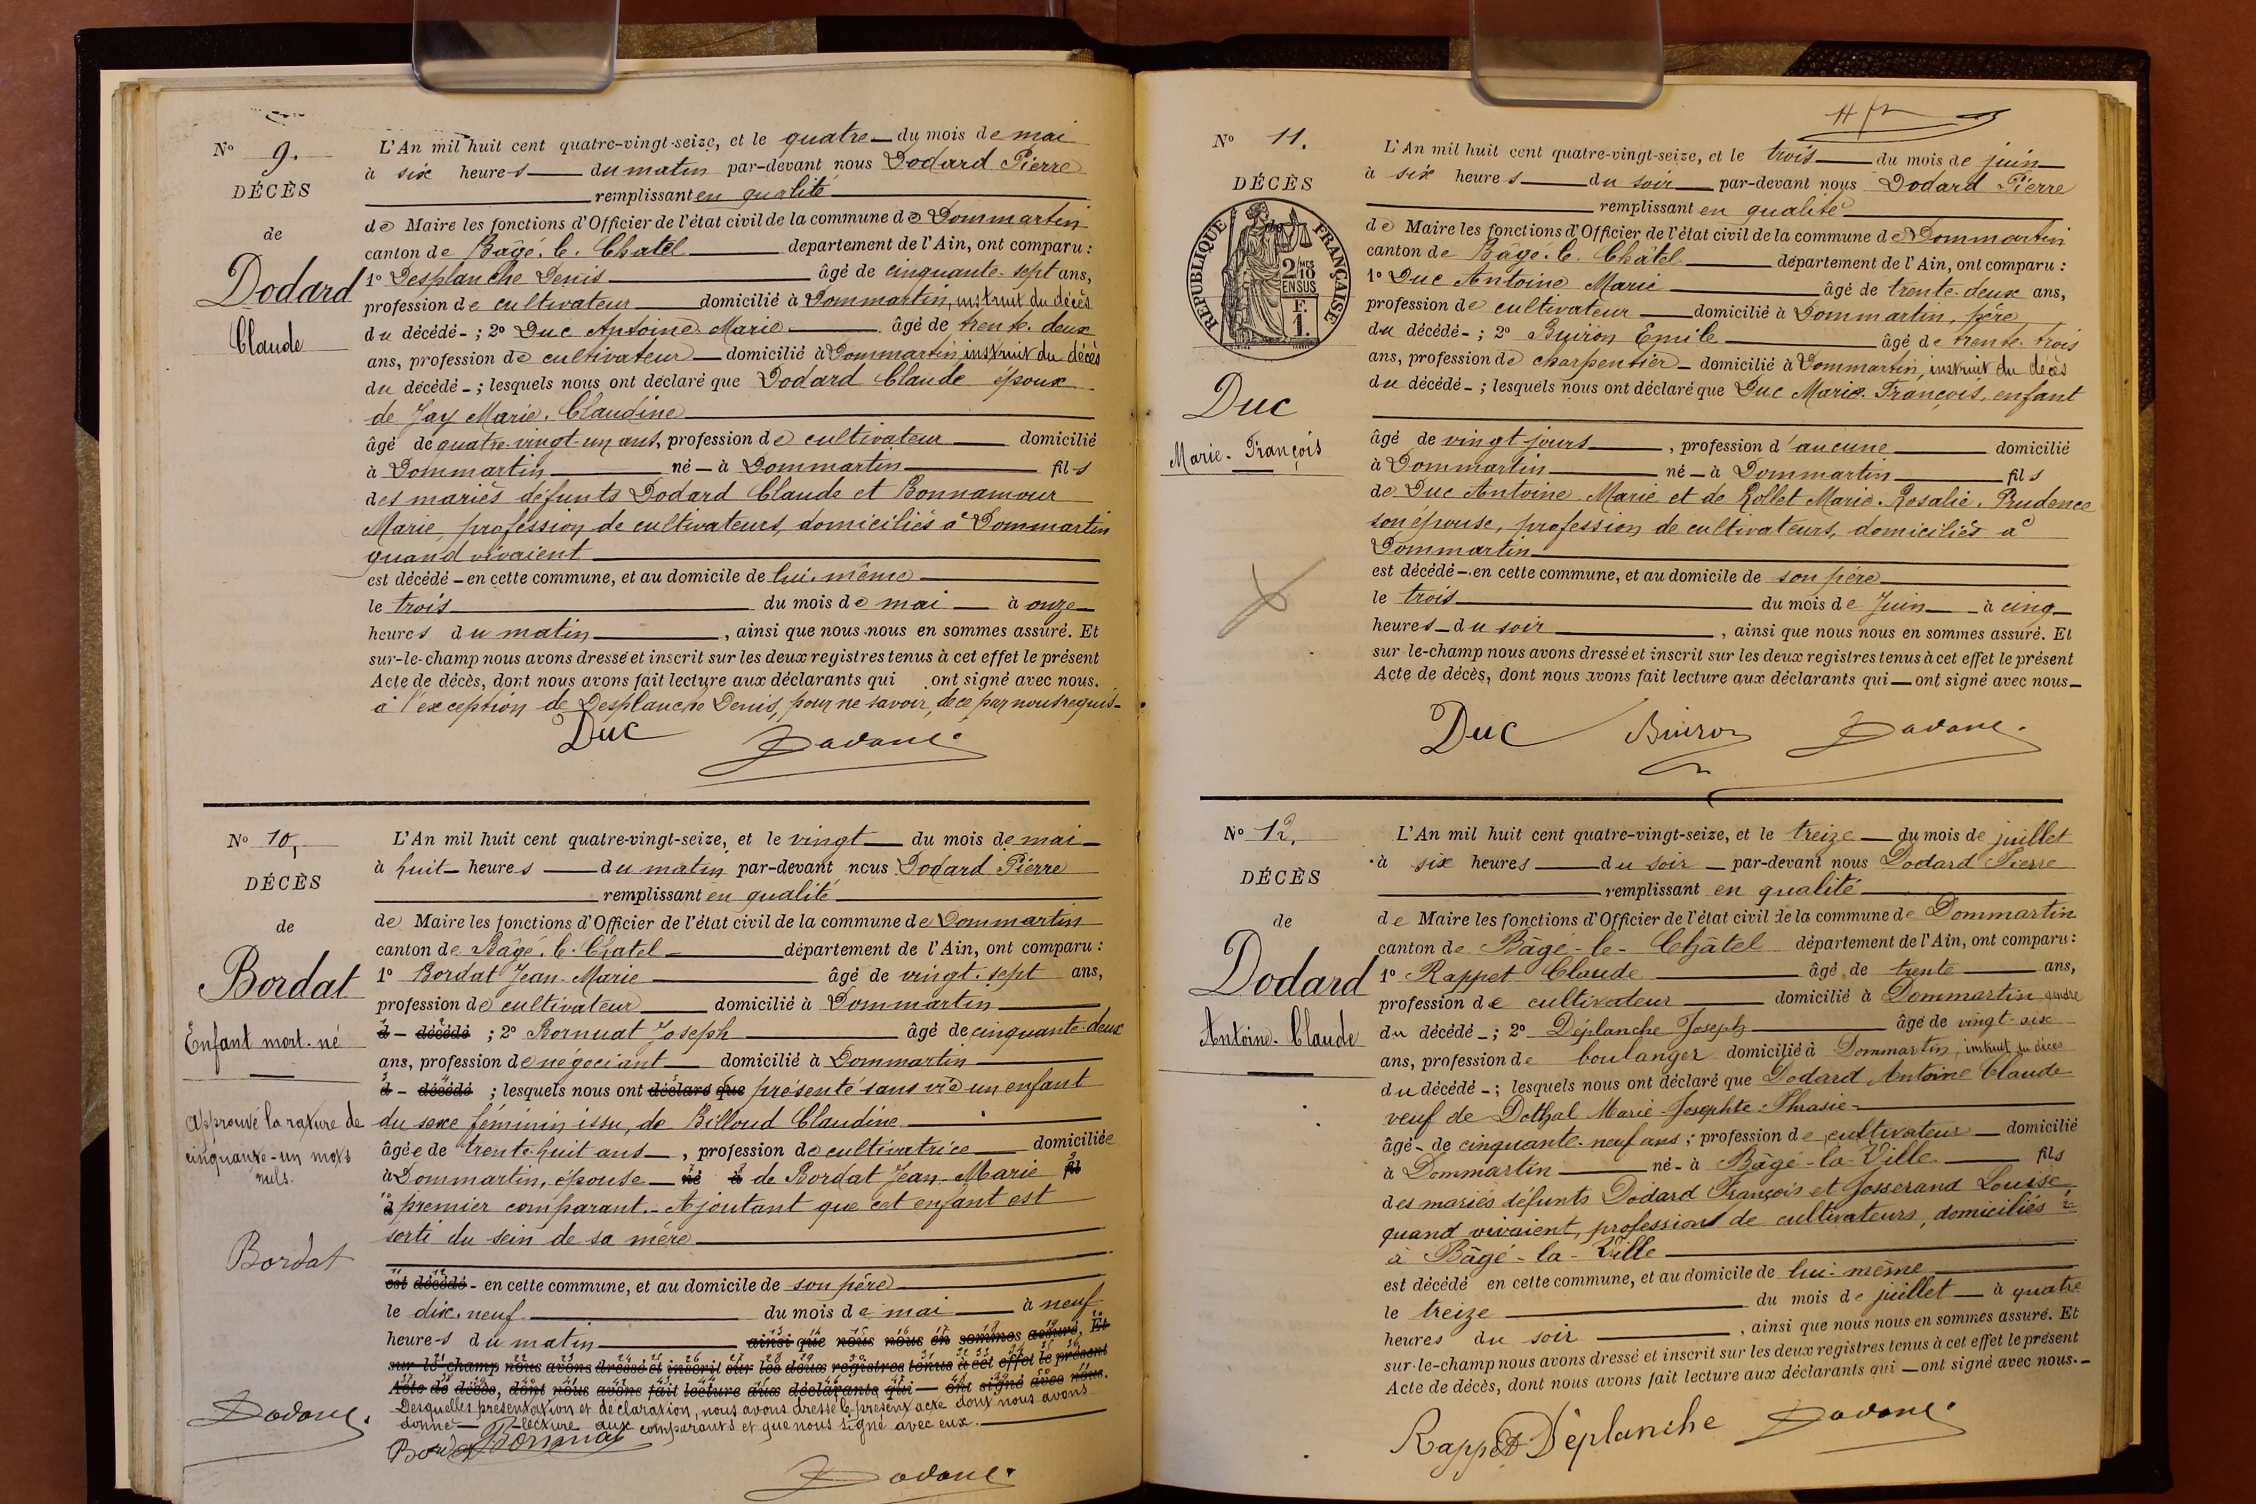 N° 9.
DÉCÈS
de
Dodard
Claude
L'An mil huit cent quatre-vingt-seize, et le quatre du mois de mai
à six heures du matin par-devant nous Dodard Pierre
remplissant en qualité
de Maire les fonctions d'Officier de l'état civil de la commune de Dommartin
canton de Bâgé-le-Chatel département de l'Ain, ont comparu :
1° Desplanche Denis âgé de cinquante-sept ans,
profession de cultivateur domicilié à Dommartin, instruit du décès
du décédé - ; 2° Duc Antoine Marie âgé de trente-deux
ans, profession de cultivateur domicilié à Dommartin instruit du décès
du décédé - ; lesquels nous ont déclaré que Dodard Claude époux
de Jay Marie-Claudine
âgé de quatre-vingt-un ans, profession de cultivateur domicilié
à Dommartin né - à Dommartin fils
des mariés défunts Dodard Claude et Bonnamour
Marie, profession de cultivateurs, domiciliés à Dommartin
quand vivaient
est décédé - en cette commune, et au domicile de lui-même
le trois du mois de mai à onze
heures du matin , ainsi que nous nous en sommes assuré. Et
sur-le-champ nous avons dressé et inscrit sur les deux registres tenus à cet effet le présent
Acte de décès, dont nous avons fait lecture aux déclarants qui ont signé avec nous.
à l'exception de Desplanche Denis, pour ne savoir, de ce par nous requis
Duc
N° 10,
DÉCÈS
de
Bordat
Enfant mort-né
Approuvé la rature de
cinquante-un mots
nuls.
Bordat
L'An mil huit cent quatre-vingt-seize, et le vingt du mois de mai
à huit heures du matin par-devant nous Dodard Pierre
remplissant en qualité
de Maire les fonctions d'Officier de l'état civil de la commune de Dommartin
canton de Bâgé-le-Châtel département de l'Ain, ont comparu :
1° Bordat Jean-Marie âgé de vingt-sept ans,
profession de cultivateur domicilié à Dommartin
d - décédé ; 2° Bornuat Joseph âgé de cinquante-deux
ans, profession de négociant domicilié à Dommartin
d - décédé ; lesquels nous ont déclaré que présenté sans vie un enfant
du sexe féminin issu, de Billoud Claudine
âgée de trente-huit ans , profession de cultivatrice domiciliée
à Dommartin, épouse né à de Bordat Jean-Marie fil
à premier comparant. - Ajoutant que cet enfant est
sorti du sein de sa mère
est décédé - en cette commune, et au domicile de son père
le dix-neuf du mois de mai à neuf
heures du matin ainsi que nous nous en sommes assuré. Et
sur-le-champ nous avons dressé et inscrit sur les deux registres tenus à cet effet le présent
Acte de décès, dont nous avons fait lecture aux déclarants qui - ont signé avec nous.
Desquelles présentation et déclaration, nous avons dressé le présent acte dont nous avons
donné lecture aux comparants et que nous signé avec eux.
N° 11.
DÉCÈS
RÉPUBLIQUE FRANÇAISE
2/10 MES
EN SUS
F.
1.
Duc
Marie-François
L'An mil huit cent quatre-vingt-seize, et le trois du mois de juin
à six heures du soir par-devant nous Dodard Pierre
remplissant en qualité
de Maire les fonctions d'Officier de l'état civil de la commune de Dommartin
canton de Bâgé-le-Châtel département de l'Ain, ont comparu :
1° Duc Antoine Marie âgé de trente-deux ans,
profession de cultivateur domicilié à Dommartin, père
du décédé - ; 2° Buiron Emile âgé de trente-trois
ans, profession de charpentier - domicilié à Dommartin, instruit du décès
du décédé - ; lesquels nous ont déclaré que Duc Marie-François, enfant
âgé de vingt jours , profession d'aucune domicilié
à Dommartin né - à Dommartin fils
de Duc Antoine Marie et de Rollet Marie-Rosalie-Prudence
son épouse, profession de cultivateurs, domiciliés à
Dommartin
est décédé - en cette commune, et au domicile de son père
le trois du mois de Juin - à cinq
heures du soir , ainsi que nous nous en sommes assuré. Et
sur-le-champ nous avons dressé et inscrit sur les deux registres tenus à cet effet le présent
Acte de décès, dont nous avons fait lecture aux déclarants qui - ont signé avec nous -
Duc Buiron
N° 12.
DÉCÈS
de
Dodard
Antoine-Claude
L'An mil huit cent quatre-vingt-seize, et le treize du mois de juillet
à six heures du soir par-devant nous Dodard Pierre
remplissant en qualité
de Maire les fonctions d'Officier de l'état civil de la commune de Dommartin
canton de Bâgé-le-Châtel département de l'Ain, ont comparu :
1° Rappet Claude âgé de trente ans,
profession de cultivateur domicilié à Dommartin gendre
du décédé - ; 2° Déplanche Joseph âgé de vingt-six
ans, profession de boulanger domicilié à Dommartin, instruit du décès
du décédé - ; lesquels nous ont déclaré que Dodard Antoine Claude
veuf de Dothal Marie-Josephte-Phrasie
âgé - de cinquante-neuf ans ; profession de cultivateur domicilié
à Dommartin né - à Bâgé-la-Ville fils
des mariés défunts Dodard François et Josserand Louise
quand vivaient, profession de cultivateurs, domiciliés
à Bâgé-la-Ville
est décédé en cette commune, et au domicile de lui-même
le treize du mois de juillet à quatre
heures du soir , ainsi que nous nous en sommes assuré. Et
sur-le-champ nous avons dressé et inscrit sur les deux registres tenus à cet effet le présent
Acte de décès, dont nous avons fait lecture aux déclarants qui - ont signé avec nous. -
Rappet Déplanche